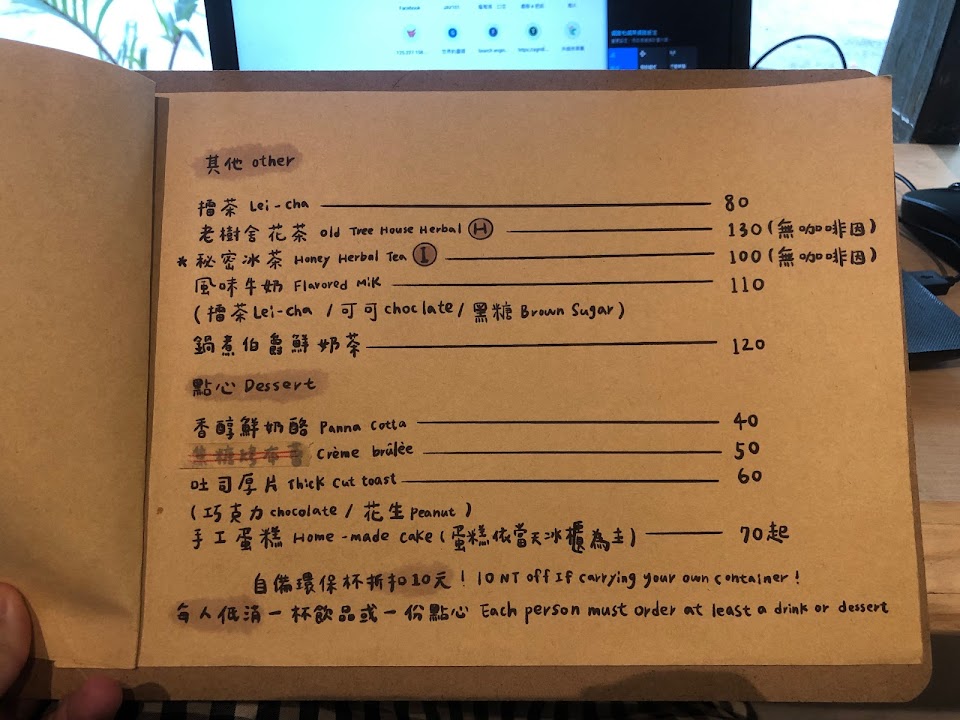 Facebook
其他 other
擂茶 Lei-cha 80
老樹舍花茶 Old Tree House Herbal H 130 (無咖啡因)
* 秘密冰茶 Honey Herbal Tea I 100 (無咖啡因)
風味牛奶 Flavored Milk 110
(擂茶 Lei-cha / 可可 choclate / 黑糖 Brown Sugar)
鍋煮伯爵鮮奶茶 120
點心 Dessert
香醇鮮奶酪 Panna Cotta 40
焦糖烤布蕾 Crème brûlèe 50
吐司厚片 Thick Cut toast 60
(巧克力 chocolate / 花生 peanut)
手工蛋糕 Home-made cake (蛋糕依當天冰櫃為主) 70起
自備環保杯折扣10元! 10 NT off If carrying your own container!
每人低消一杯飲品或一份點心 Each person must order at least a drink or dessert